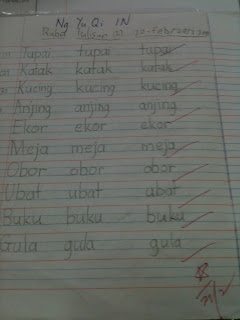 Ng Yu Qi 1N
Tupai tupai tupai
Katak katak katak
Kucing kucing kucing
Anjing anjing anjing
Ekor ekor ekor
Meja meja meja
Obor obor obor
Ubat ubat ubat
Buku buku buku
Gula gula gula